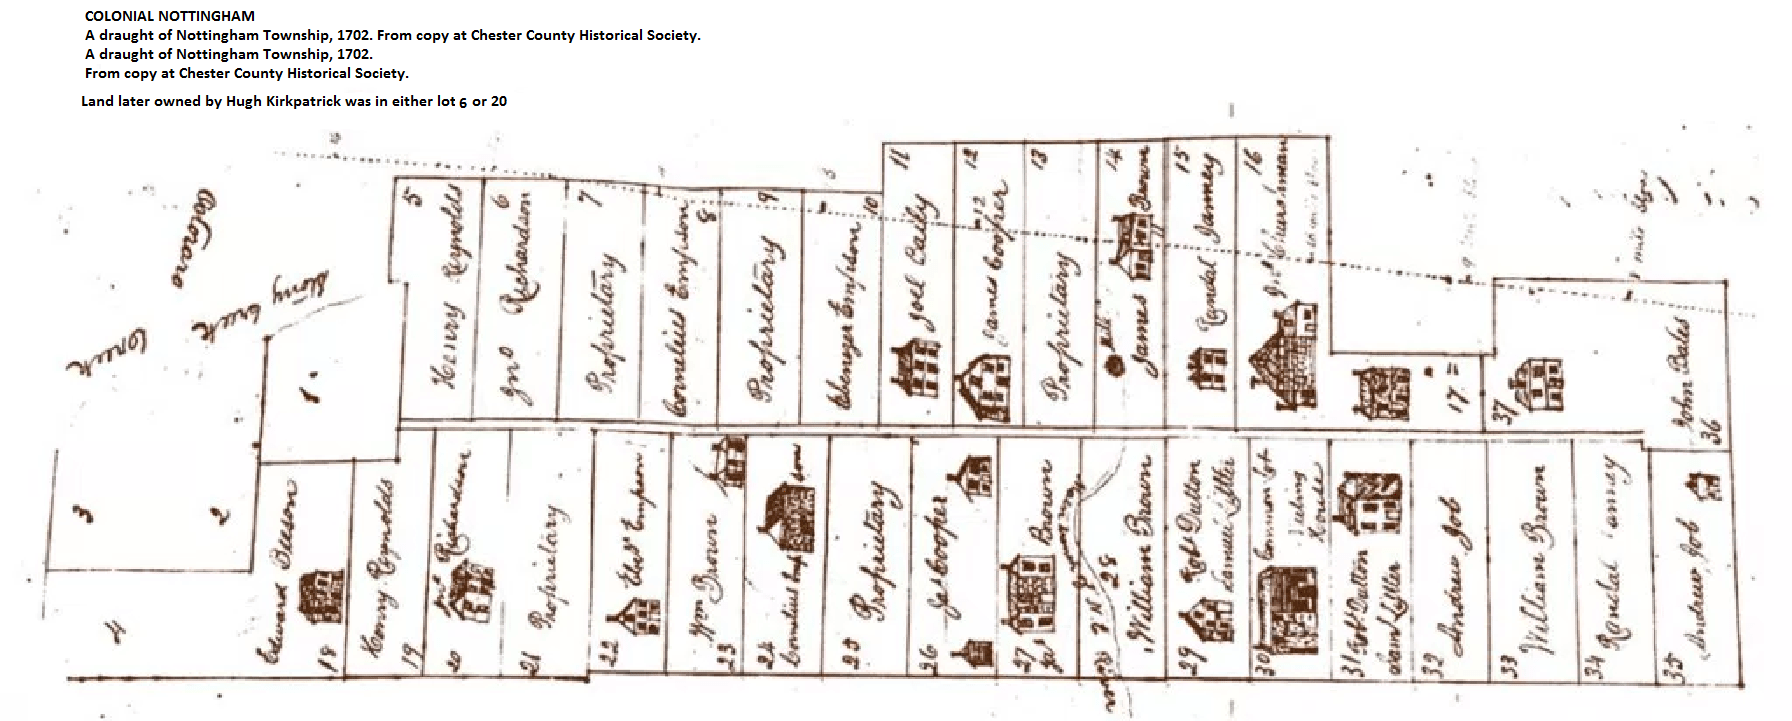 COLONIAL NOTTINGHAM
A draught of Nottingham Township, 1702. From copy at Chester County Historical Society.
A draught of Nottingham Township, 1702.
From copy at Chester County Historical Society.
Land later owned by Hugh Kirkpatrick was in either lot 6 or 20
Octoraro
Creek
Stony
Creek
1
2
3
4
5
Henry Reynolds
6
Jno Richardson
7
Proprietary
8
Cornelius Empson
9
Proprietary
10
Ebenezer Empson
11
Joel Baily
12
James Cooper
13
Proprietary
14
James Brown
Mill
15
Randal Janney
16
17
37
John Bales
36
Edward Beeson
18
Henry Reynolds
19
Jno Richardson
20
Proprietary
21
22
Ebr Empson
Wm Brown
23
24
Cornelius Empson
Proprietary
25
Jas Cooper
26
27
Brown
28
William Brown
29
Robt Dutton
Samuel Litler
30
Common Lot
Meeting
House
31 Robt Dutton
Saml Litler
32 Andrew Job
33 William Brown
34 Randal Janney
35 Andrew Job